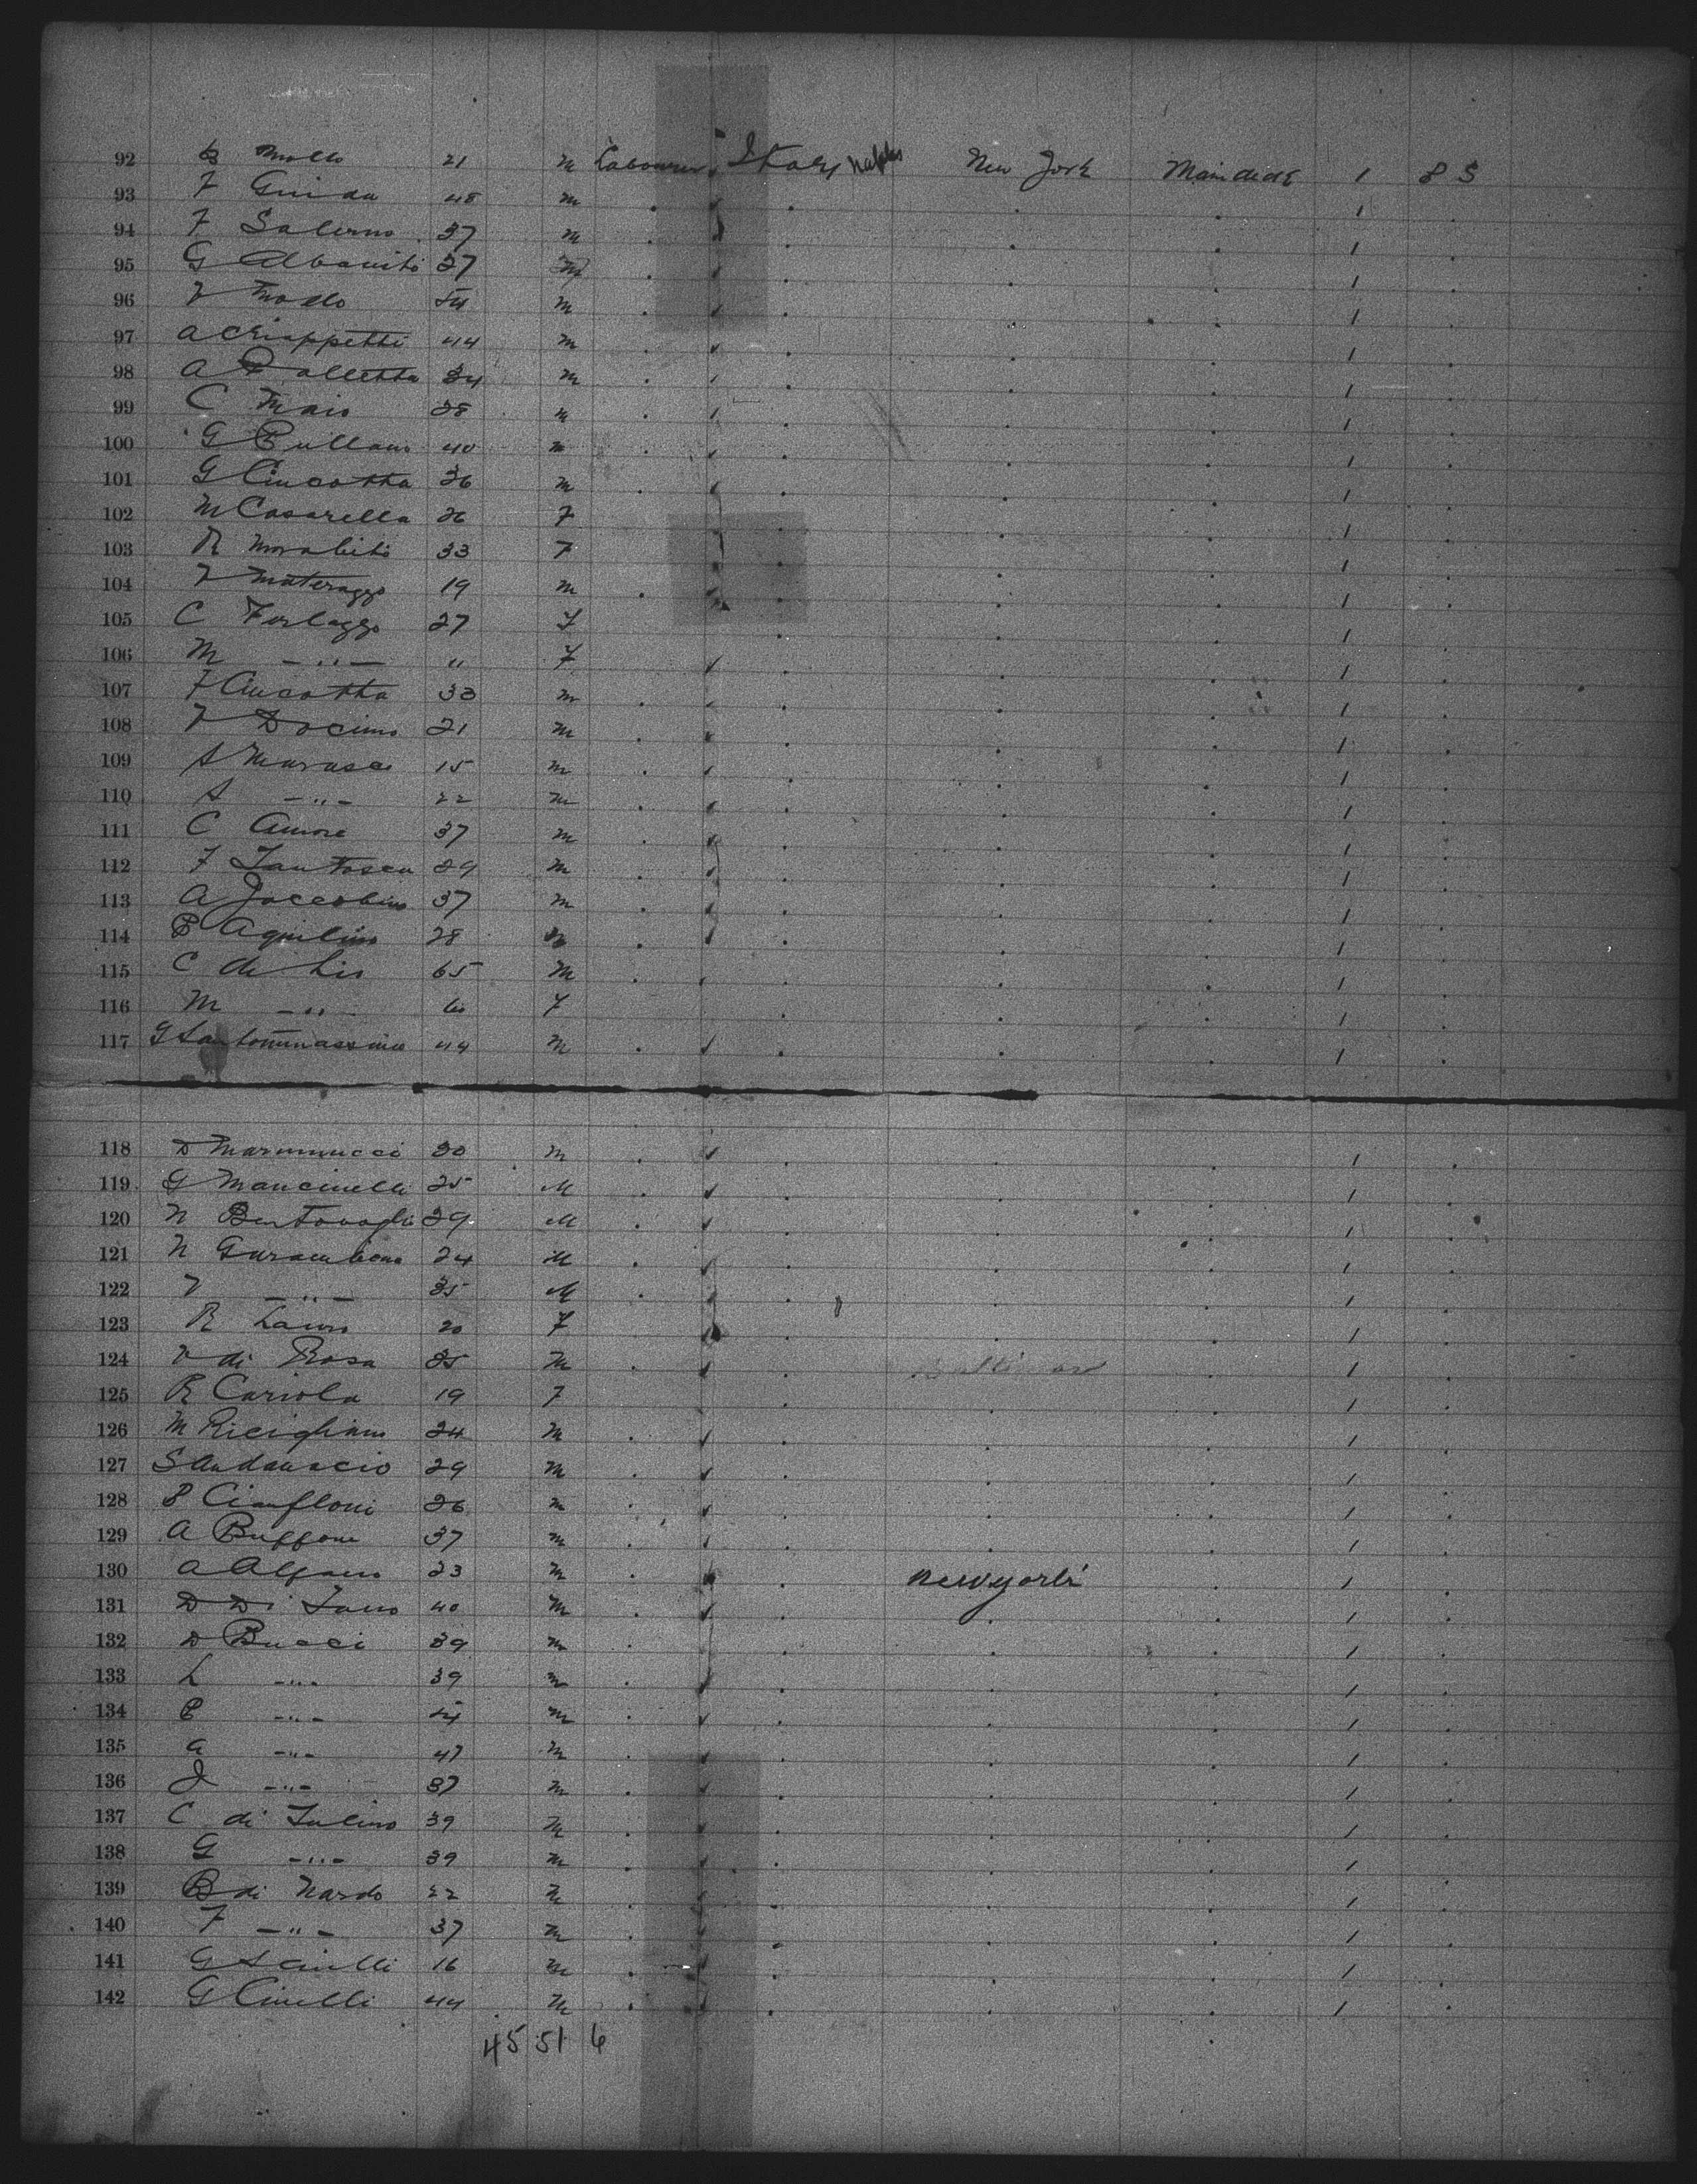 92 Mollo 21 m Labourer Italy Naples New York Main deck 1 P S
93 F Guida 48 m . . . . 1 .
94 F Salerno 37 m . . . . 1 .
95 G Albanito 27 m . . . . 1 .
96 V Mollo m . . . . 1 .
97 A Chiappetti 44 m . . . . 1 .
98 A Palletta 34 m . . . . 1 .
99 C Maio 28 m . . . . 1 .
100 G Pullano 40 m . . . . 1 .
101 G Cincotta 36 m . . . . 1 .
102 M Casarella 26 F . . . 1 .
103 R Morabito 33 F . . . 1 .
104 V Materazzo 19 m . . . . 1 .
105 C Forlazzo 27 F . . . 1 .
106 M -"- " F . . . 1 .
107 F Cincotta 33 m . . . . 1 .
108 V Docimo 21 m . . . . 1 .
109 S Marasco 15 m . . . . 1 .
110 S -"- 22 m . . . . 1 .
111 C Amore 37 m . . . . 1 .
112 F Iantosca 29 m . . . . 1 .
113 A Jaccobino 37 m . . . . 1 .
114 P Aquilino 28 m . . . . 1 .
115 C de Lio 65 M . . . . 1 .
116 M -"- F . . . 1 .
117 G Santommassimo 44 m . . . . 1 .
118 D Marinucci 30 m . . . . 1 .
119 G Mancinelli 25 M . . . . 1 .
120 N 29 M . . . . 1 .
121 N 24 M . . . . 1 .
122 V -"- 35 M . . . . 1 .
123 R Lauro 20 F . . . 1 .
124 V di Rosa 35 M . . Baltimore . 1 .
125 R Cariola 19 F . . . 1 .
126 M Ricigliano 24 M . . . . 1 .
127 S Andanacio 29 M . . . . 1 .
128 P Cianfloni 26 m . . . . 1 .
129 A Buffone 37 m . . . . 1 .
130 A Alfano 23 M . . new york . 1 .
131 D Di Iano 40 M . . . . 1 .
132 D Bucci 39 m . . . . 1 .
133 L -"- 39 m . . . . 1 .
134 P -"- m . . . . 1 .
135 A -"- 47 m . . . . 1 .
136 J -"- 37 m . . . . 1 .
137 C di Iulino 39 m . . . . 1 .
138 G -"- 39 m . . . . 1 .
139 B di Nardo 22 m . . . . 1 .
140 F -"- 37 m . . . . 1 .
141 G Scinlli 16 m . . . . 1 .
142 G Cinelli 44 m . . . . 1 .
45 51 6